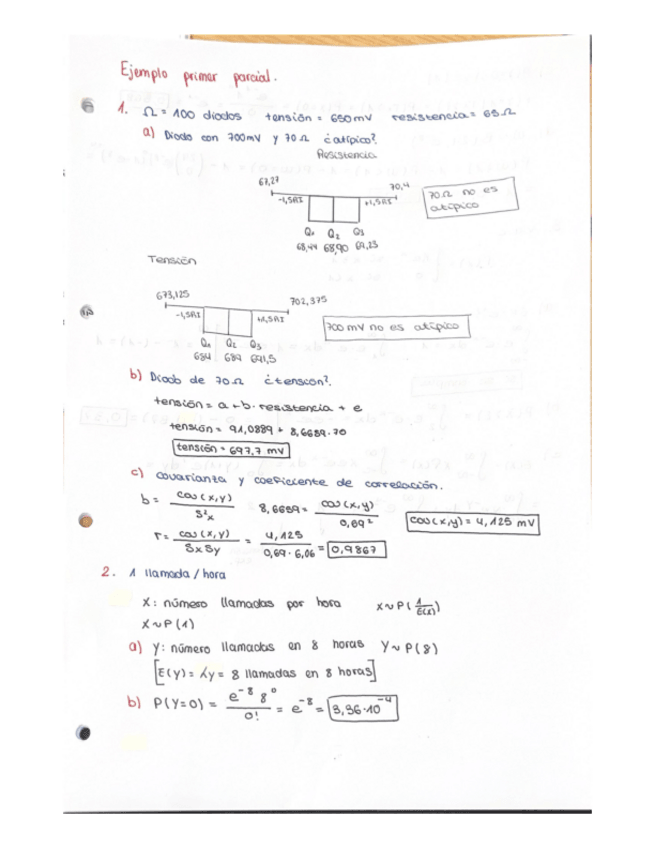 Ejemplo primer parcial.
1. Ω = 100 diodos tensión = 650mV resistencia = 65Ω
a) Diodo con 700mV y 70Ω ¿atípico?
Resistencia
67,27 70,4
-1,5RI +1,5RI
70Ω no es atípico
Q1 Q2 Q3
68,44 68,90 69,23
Tensión
673,125 702,375
-1,5RI +1,5RI
700 mV no es atípico
Q1 Q2 Q3
684 689 691,5
b) Diodo de 70Ω ¿tensión?
tensión = a + b · resistencia + e
tensión = 91,0889 + 8,6689·70
tensión = 697,7 mV
c) covarianza y coeficiente de correlación.
b = cov(x,y) / S²x 8,6689 = cov(x,y) / 0,69² cov(x,y) = 4,125 mV
r = cov(x,y) / Sx Sy = 4,125 / 0,69 · 6,06 = 0,9867
2. 1 llamada / hora
X: número llamadas por hora X~P(1/E(x))
X~P(1)
a) Y: número llamadas en 8 horas Y~P(8)
[E(Y) = λy = 8 llamadas en 8 horas]
b) P(Y=0) = e⁻⁸ 8⁰ / 0! = e⁻⁸ = 3,36·10⁻⁴